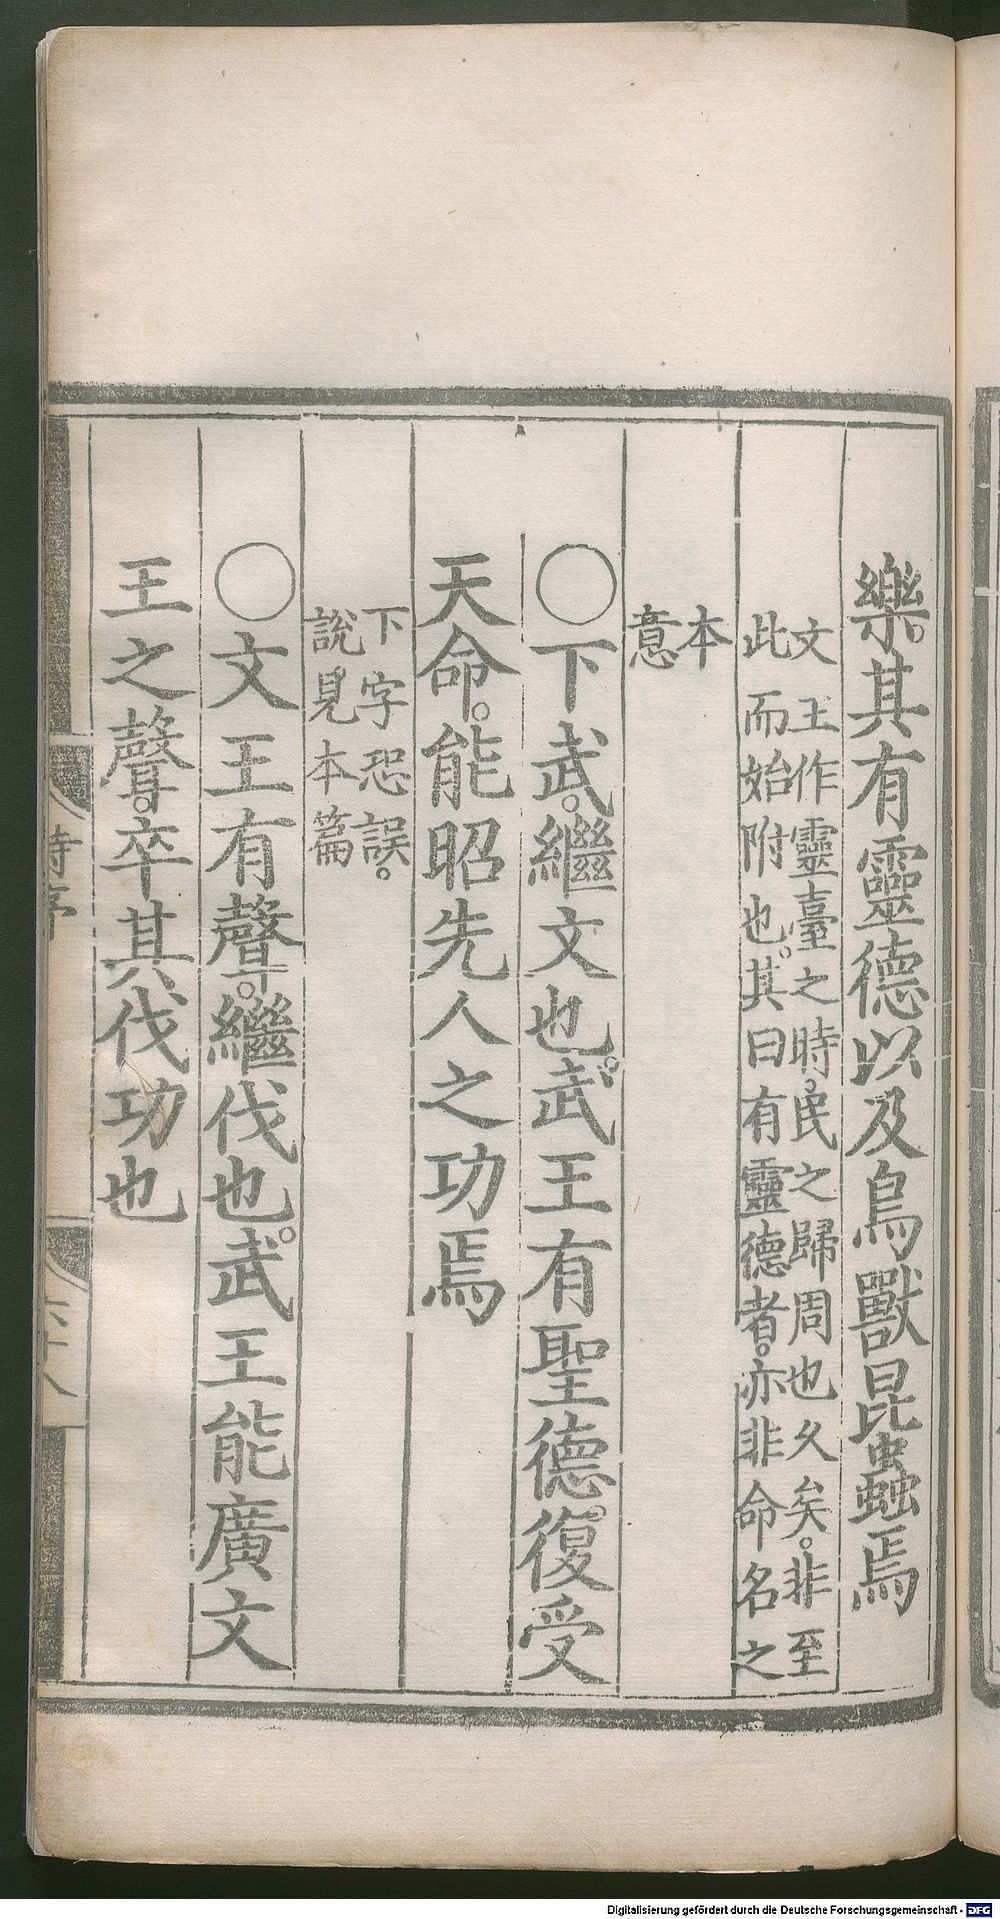 樂。其有靈德以及鳥獸昆蟲焉
文王作靈臺之時。民之歸周也久矣。非至
此而始附也。其曰有靈德者。亦非命名之
本
意
○下武。繼文也。武王有聖德。復受
天命。能昭先人之功焉
下字恐誤。
說見本篇
○文王有聲。繼伐也。武王能廣文
王之聲。卒其伐功也
詩序
六十八
Digitalisierung gefördert durch die Deutsche Forschungsgemeinschaft - DFG